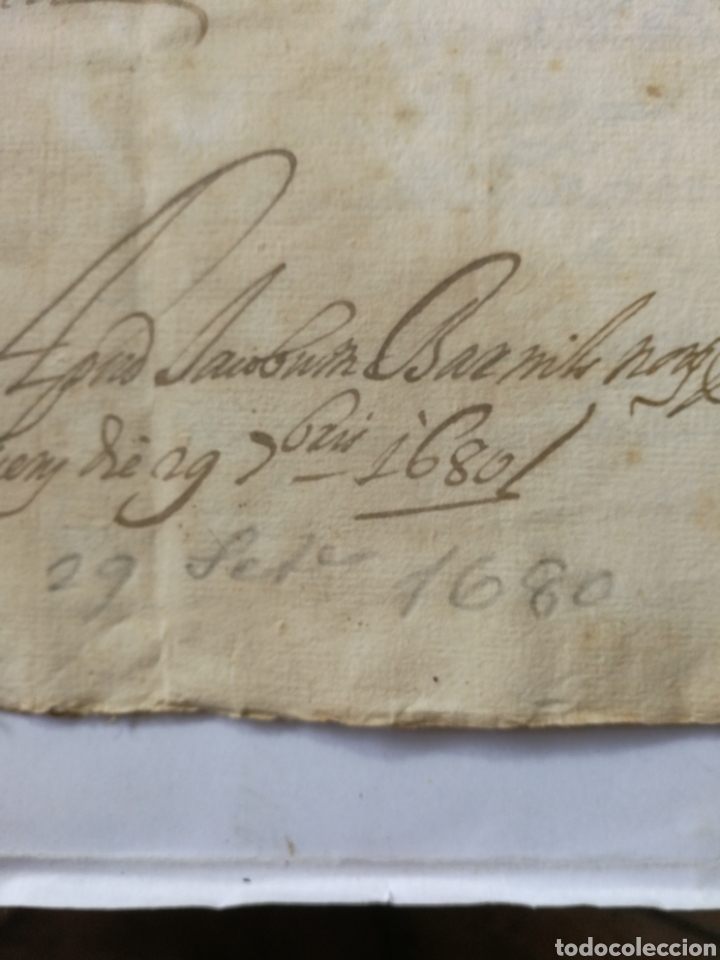 Apud Jacobum Barnils noty
die 29 7bris 1680
29 Sete 1680
todocoleccion